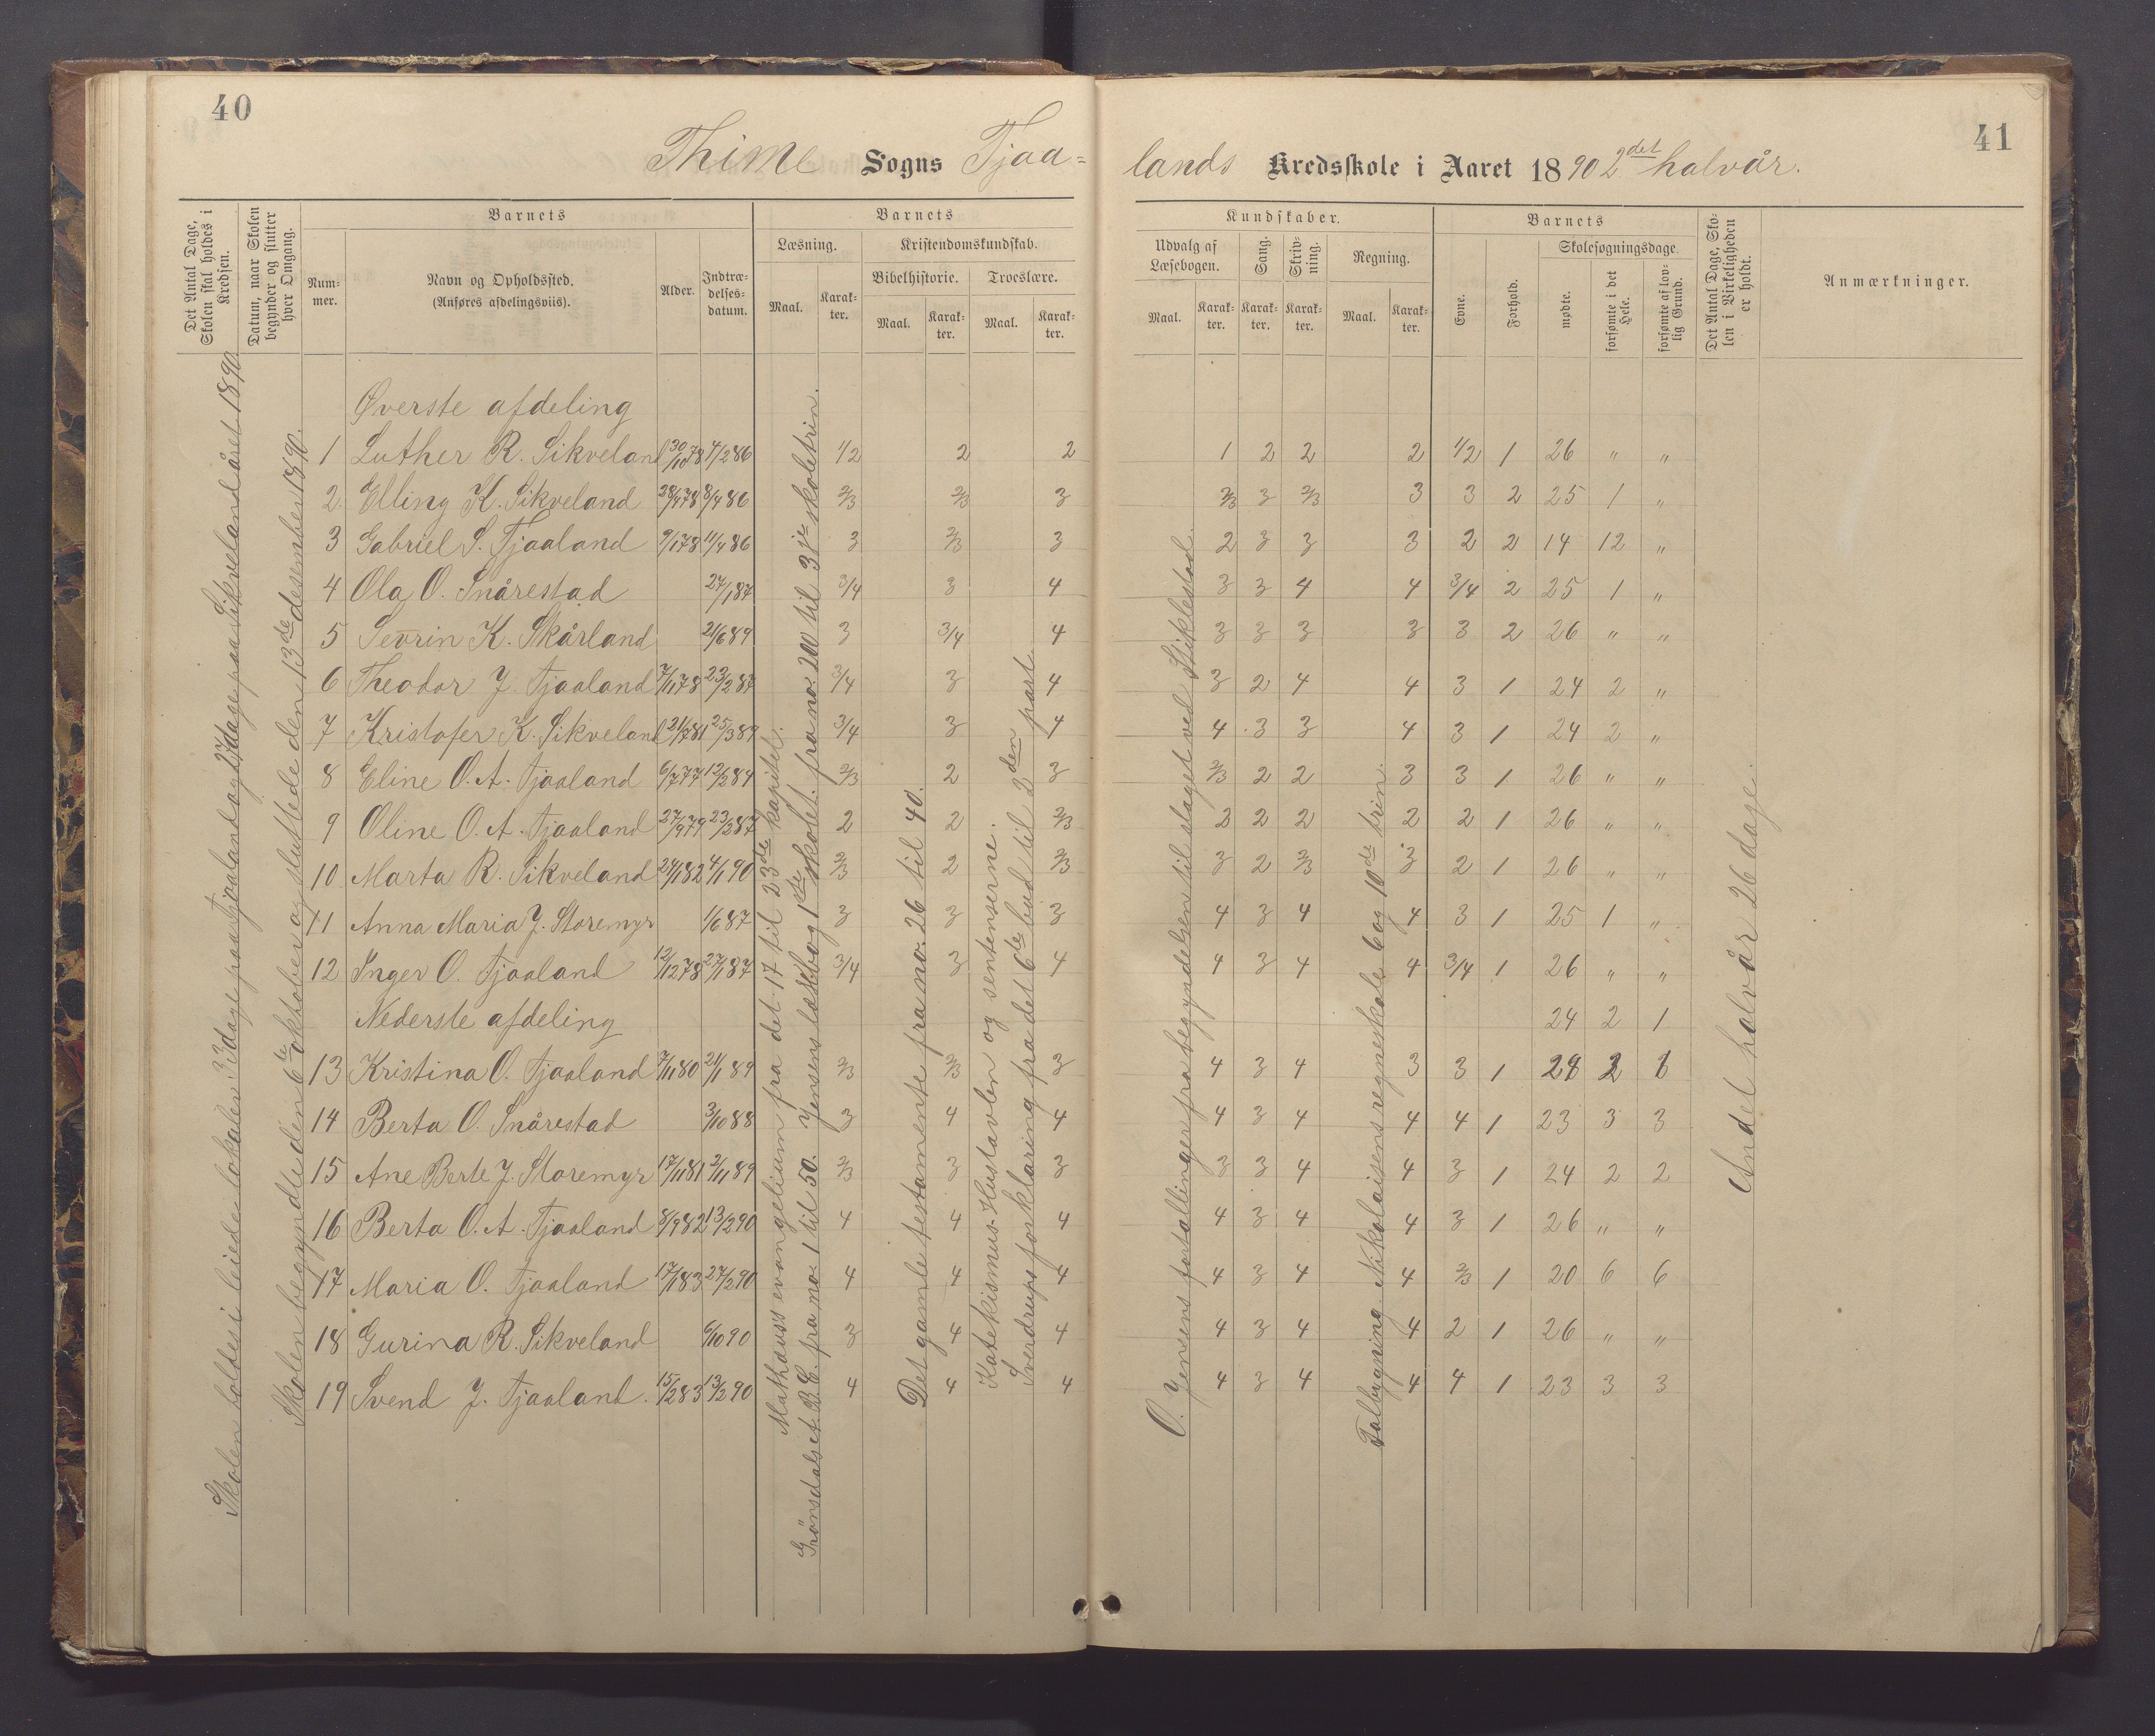 40
Thime Sogns Tjaa=
Det Antal Dage, Skolen skal holdes i Kredsen.
Datum, naar Skolen begynder og slutter hver Omgang.
Barnets
Num-mer.
Navn og Opholdssted. (Anføres afdelingsviis).
Alder.
Indtræ-delses-datum.
Barnets
Læsning.
Maal.
Karak-ter.
Kristendomskundskab.
Bibelhistorie.
Maal.
Karak-ter.
Troeslære.
Maal.
Karak-ter.
Øverste afdeling
1 Luther R. Sikveland 30/10 78 4/2 86 1/2 2 2
2. Elling K. Sikveland 28/4 78 8/4 86 2/3 2/3 3
3 Gabriel S. Tjaaland 9/1 78 11/4 86 3 2/3 3
4 Ola O. Snårestad 27/1 87 3/4 3 4
5 Sevrin K. Skårland 21/6 89 3 3/4 4
6 Theodor J. Tjaaland 7/11 78 23/2 87 3/4 3 4
7 Kristofer K. Sikveland 21/7 81 25/3 89 3/4 3 4
8 Eline O. A. Tjaaland 6/7 77 12/2 84 2/3 2 3
9 Oline O. A. Tjaaland 27/9 79 23/2 87 2 2 2/3
10 Marta R. Sikveland 24/1 82 4/1 90 2/3 2 2/3
11 Anna Maria J. Storemyr 1/6 87 3 3 3
12 Inger O. Tjaaland 12/12 78 27/1 87 3/4 3 4
Nederste afdeling
13 Kristina O. Tjaaland 7/11 80 21/1 89 2/3 2/3 3
14 Berta O. Snårestad 3/10 88 3 4 4
15 Ane Berte J. Storemyr 17/11 81 2/11 89 2/3 3 3
16 Berta O. A. Tjaaland 8/9 82 13/2 90 4 4 4
17 Maria O. Tjaaland 17/1 83 27/2 90 4 4 4
18 Gurina R. Sikveland 6/10 90 3 4 4
19 Svend J. Tjaaland. 15/2 83 13/2 90 4 4 4
Skolen holdes i leiede lokaler 33 dage paa Tjaaland og 27 dage paa Sikveland året 1890.
Skolen begyndte den 6te oktober og sluttede den 13de desember 1890.
Mathæuss evangelium fra det 17 til 23de kapitel.
Grönsdals et B C. fra no. 1 til 50. Jensens læsebog 1ste skolet. fra no. 200 til 3die skoletrin.
Det gamle testamente fra no. 26 til 40.
Katekismus. Hustavlen og sentenserne.
Sverdrups forklaring fra det 6te bud til 2den part.
41
lands Kredsskole i Aaret 1890 2det halvår.
Kundskaber.
Udvalg af Læsebogen.
Maal.
Karak-ter.
Sang.
Karak-ter.
Skriv-ning.
Karak-ter.
Regning.
Maal.
Karak-ter.
Barnets
Evne.
Forhold.
Skolesøgningsdage.
mødte.
forsømte i det Hele.
forsømte af lov-lig Grund.
Det Antal Dage, Sko-len i Virkeligheden er holdt.
Anmærkninger.
1 2 2 2 1/2 1 26 " "
2/3 3 2/3 3 3 2 25 1 "
2 3 3 3 2 2 14 12 "
3 3 4 4 3/4 2 25 1 "
3 3 3 3 3 2 26 " "
3 2 4 4 3 1 24 2 "
4 3 3 4 3 1 24 2 "
2/3 2 2 3 3 1 26 " "
2 2 2 2 2 1 26 " "
3 2 2/3 3 2 1 26 " "
4 3 4 4 3 1 25 1 "
4 3 4 4 3/4 1 26 " "
24 2 1
4 3 4 3 3 1
4 3 4 4 4 1 23 3 3
3 3 4 4 3 1 24 2 2
4 3 4 4 3 1 26 " "
4 3 4 4 2/3 1 20 6 6
4 3 4 4 2 1 26 " "
4 3 4 4 4 1 23 3 3
O. Jensens fortællinger fra begyndelsen til slaget ved Stiklestad.
Talbygning Nikolaisens regneskole 6 og 10de trin.
Andet halvår 26 dage.